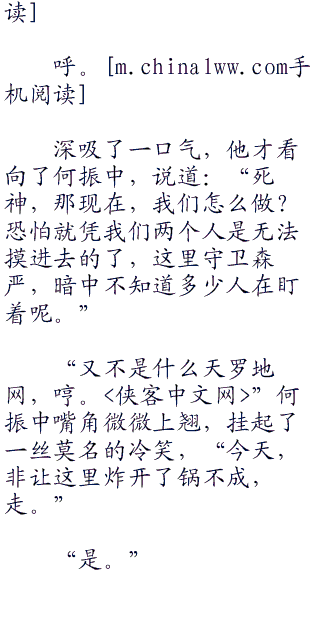 读]
呼。[m.chinalww.com手
机阅读]
深吸了一口气，他才看
向了何振中，说道：“死
神，那现在，我们怎么做？
恐怕就凭我们两个人是无法
摸进去的了，这里守卫森
严，暗中不知道多少人在盯
着呢。”
“又不是什么天罗地
网，哼。<侠客中文网>”何
振中嘴角微微上翘，挂起了
一丝莫名的冷笑，“今天，
非让这里炸开了锅不成，
走。”
“是。”